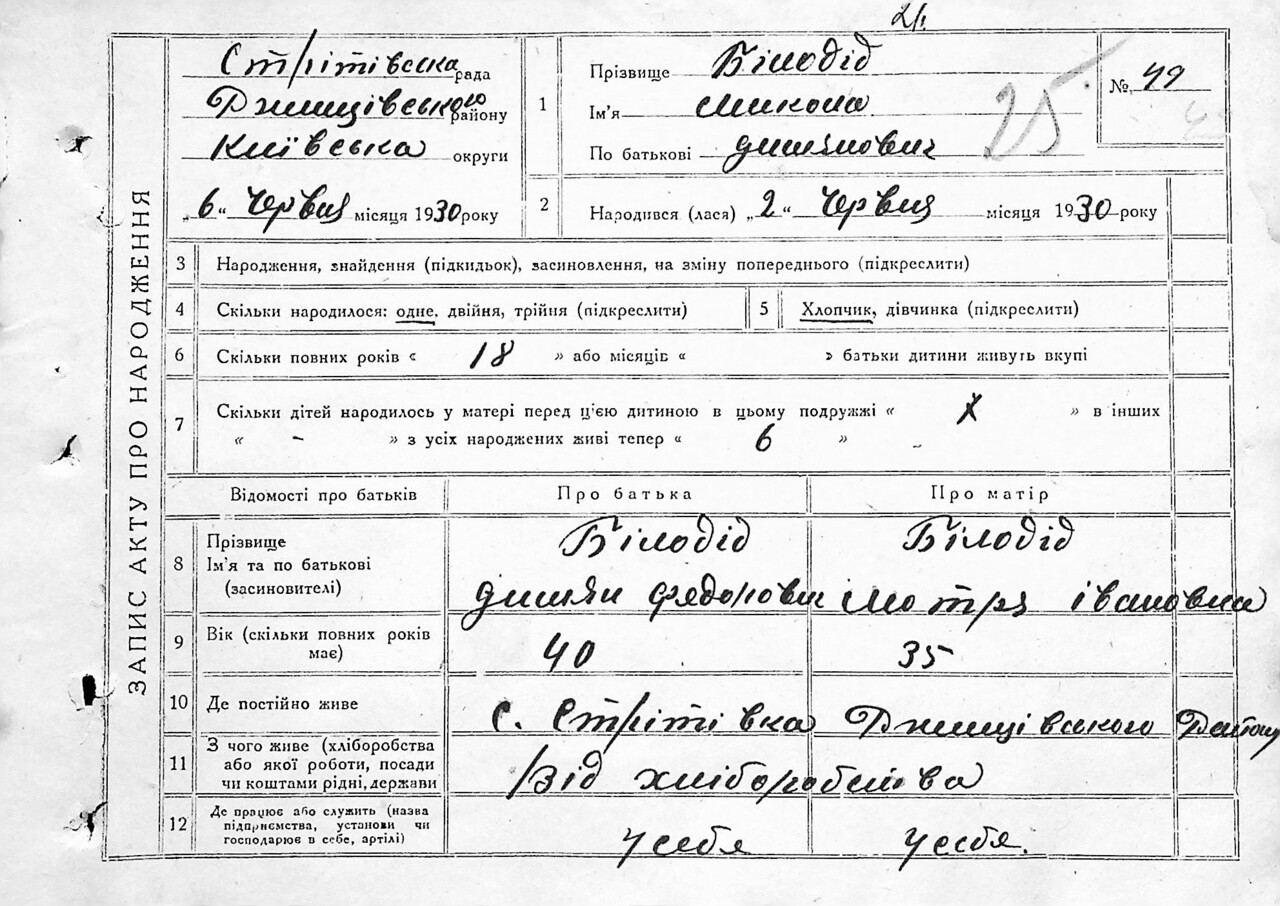 21.
Стрітівська рада
Ржищівського району
Київська округи
„6“ Червня місяця 1930 року
1
Прізвище Білодід
Ім'я Микола
По батькові Дим'янович
25
№ 49
2
Народився (лася) „2“ Червня місяця 1930 року
ЗАПИС АКТУ ПРО НАРОДЖЕННЯ
3 Народження, знайдення (підкидьок), засиновлення, на зміну попереднього (підкреслити)
4 Скільки народилося: одне, двійня, трійня (підкреслити)
5 Хлопчик, дівчинка (підкреслити)
6 Скільки повних років « 18 » або місяців « » батьки дитини живуть вкупі
7 Скільки дітей народилось у матері перед ц'єю дитиною в цьому подружжі « X » в інших
« - » з усіх народжених живі тепер « 6 »
Відомості про батьків
Про батька
Про матір
8
Прізвище
Ім'я та по батькові
(засиновителі)
Білодід
Дим'ян Федорович
Білодід
Мотря Івановна
9 Вік (скільки повних років
має)
40
35
10 Де постійно живе
с. Стрітівка Ржищівського Району
11
З чого живе (хліборобства
або якої роботи, посади
чи коштами рідні, держави
Від хліборобства
12
Де працює або служить (назва
підприємства, установи чи
господарює в себе, артілі)
у себя
у себя.